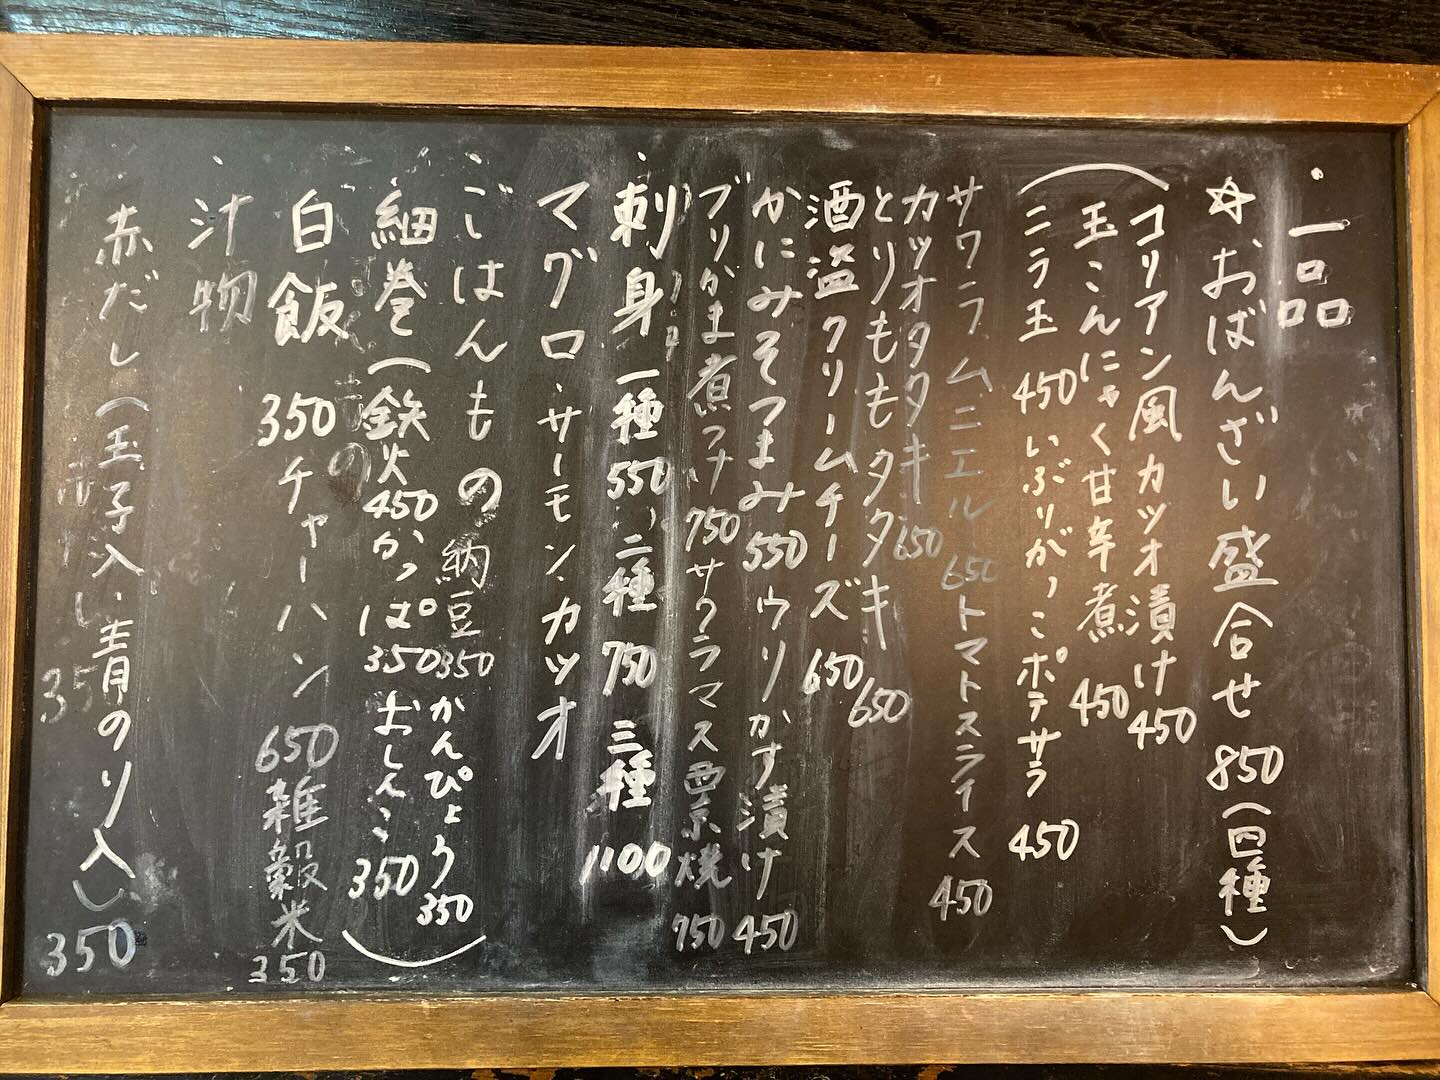 ・一品
☆おばんざい盛合せ 850(四種)
(コリアン風カツオ漬け 450
玉こんにゃく甘辛煮 450
ニラ玉 450 いぶりがっこポテサラ 450
サワラムニエル 650 トマトスライス 450
カツオタタキ 650
とりももタタキ 650
酒盗クリームチーズ 650
かにみそつまみ 550 ウリかす漬け 450
ブリかま煮つけ 750 サクラマス西京焼 750
・刺身 一種 550 二種 750 三種 1100
マグロ・サーモン・カツオ
・ごはんもの 納豆 350 かんぴょう 350
細巻(鉄火 450 かっぱ 350 おしんこ 350)
白飯 350 チャーハン 650 雑穀米 350
・汁物
赤だし(玉子入い 青のり入し) 350
35